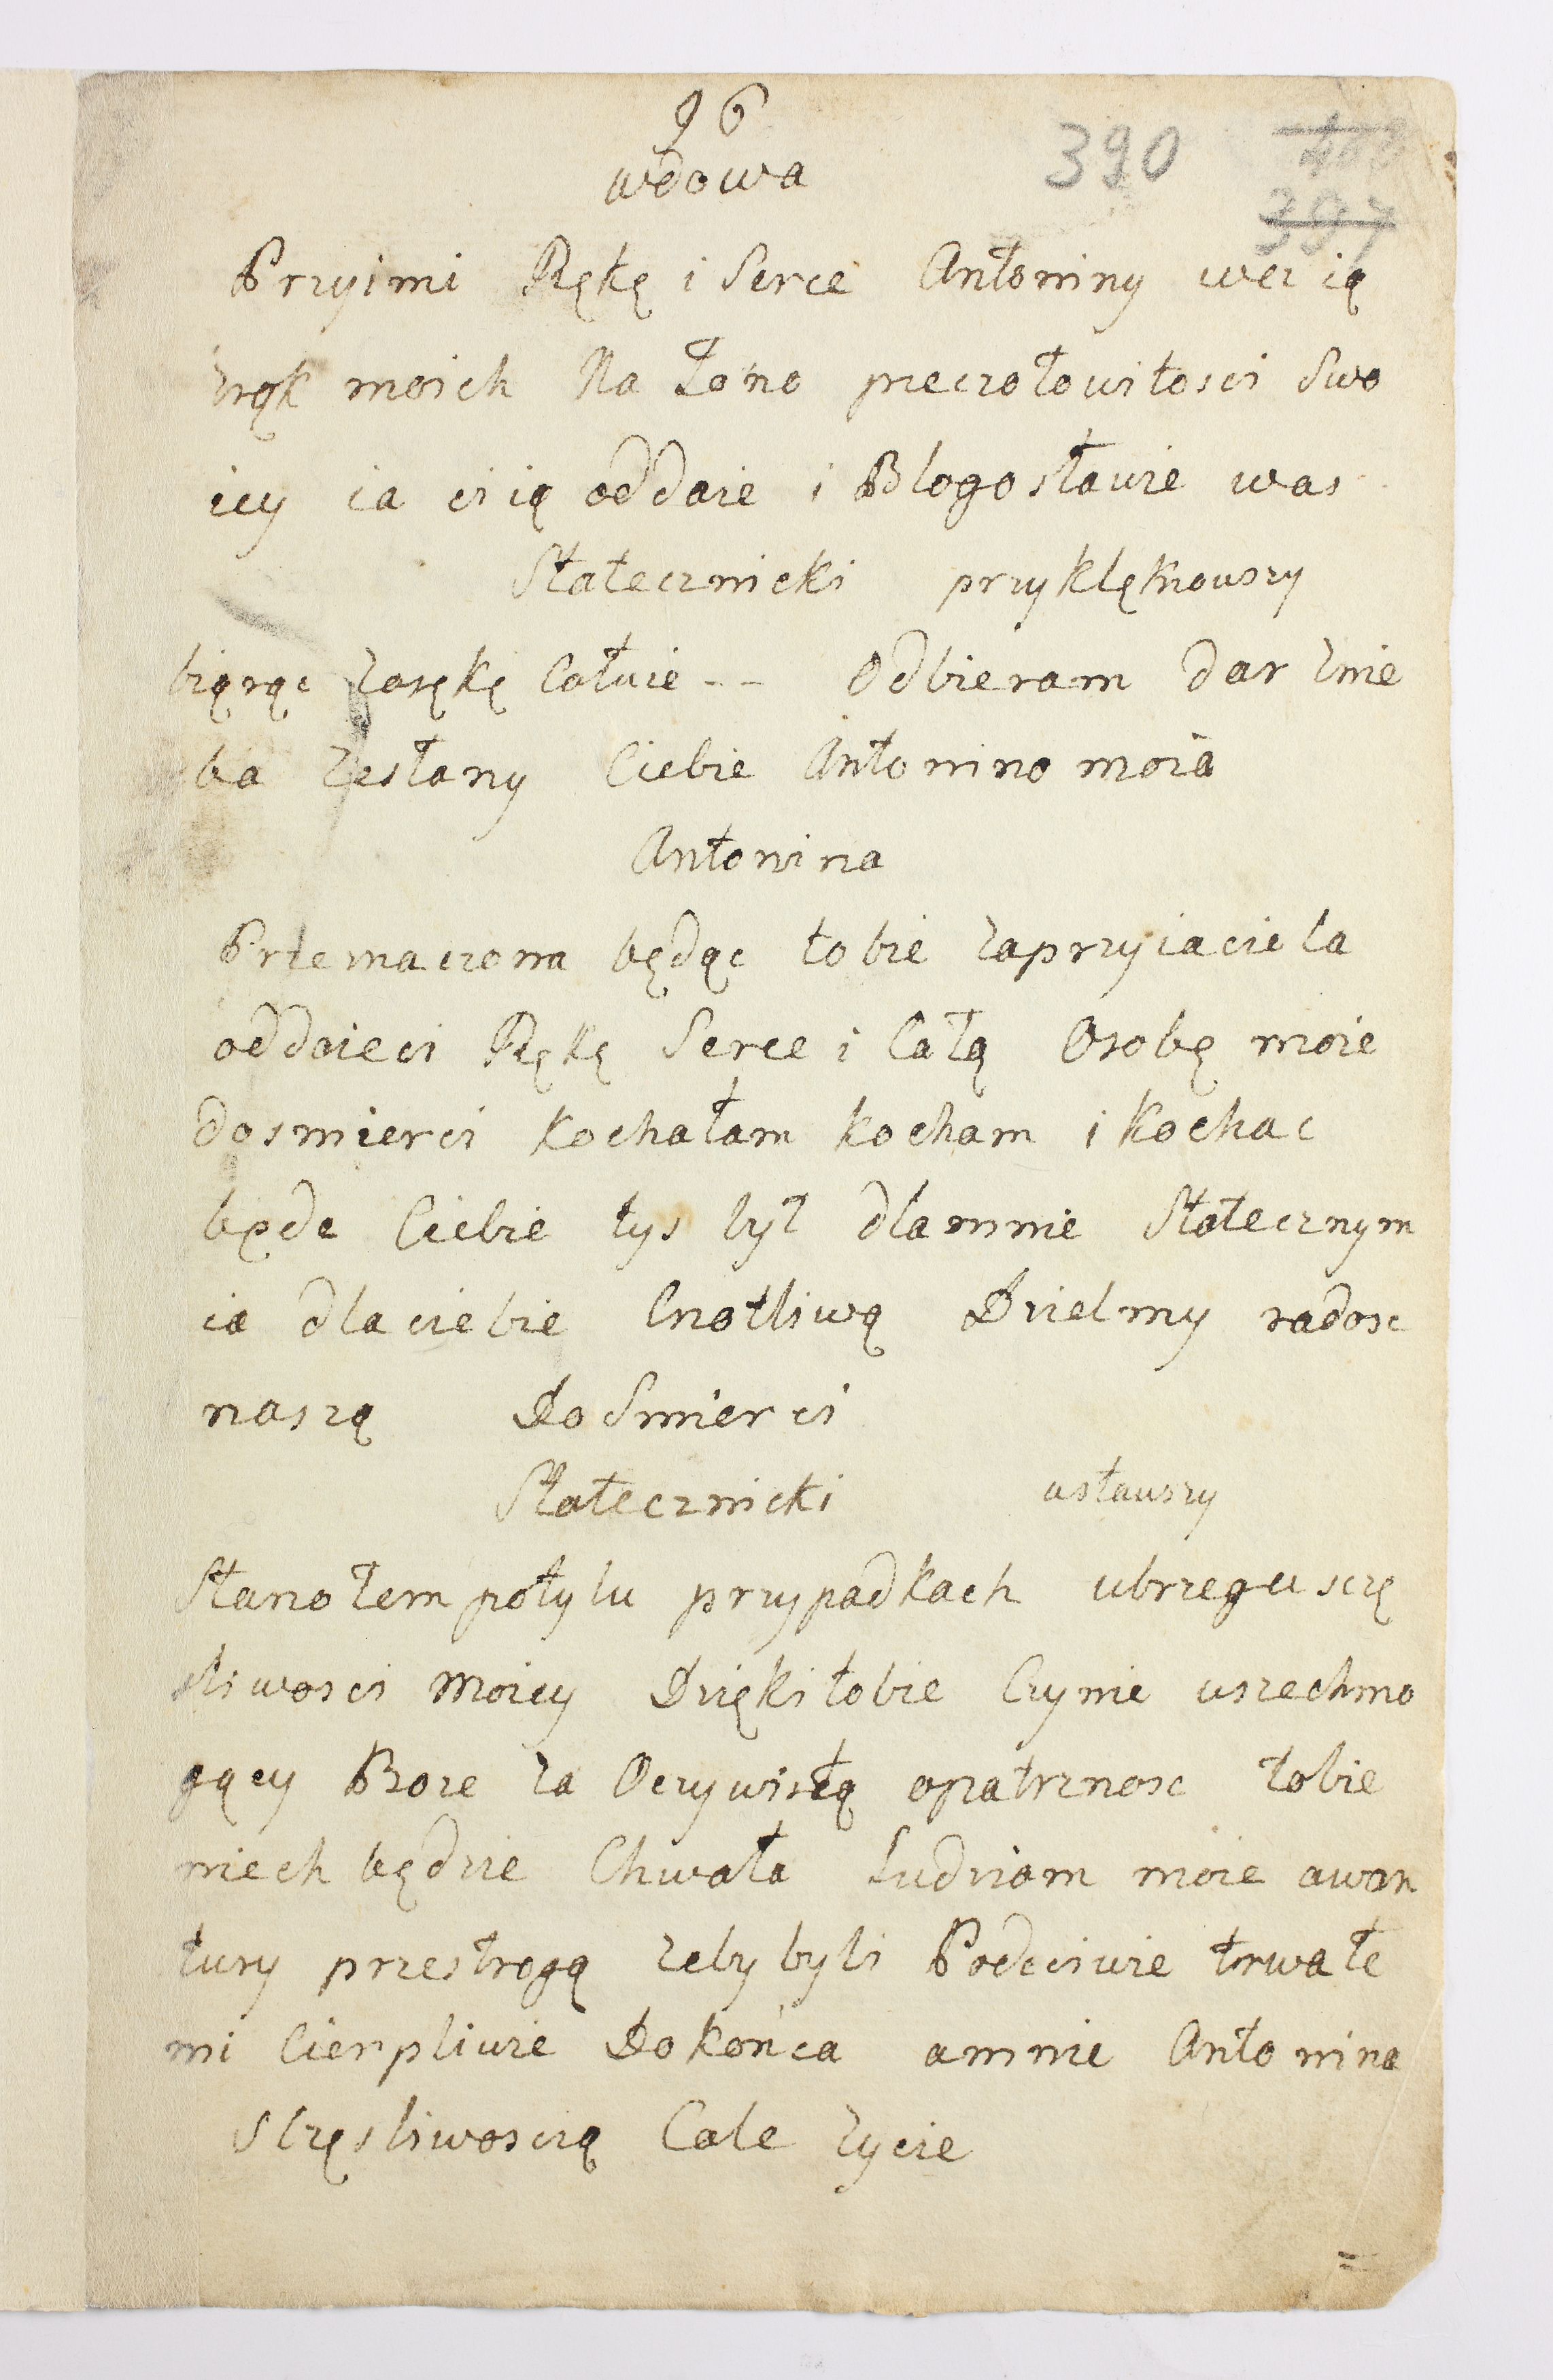 96
wdowa
390
397
Przyimi Rękę i Serce Antoniny wez ię
zrąk moich Na Łono pieczołowitosci Swo
iey ia ci ię oddaie i Blogosławie was
Statecznicki przyklęknowszy
biąrąc zarękę Całuie --
Odbieram dar znie
ba zesłany Ciebie Antonino moia
Antonina
Przeznaczona będąc tobie zaprzyiaciela
oddaieci Rękę Serce i Całą Osobę moie
dosmierci kochałam kocham i kochac
będe Ciebie tys był dlamnie Statecznym
ia dlaciebie Cnotliwą Dzielmy radosc
naszą Do Smierci
Statecznicki wstawszy
Stanołem potylu przypadkach ubrzegu sczę
sliwosci Moiey Dziękitobie Czynie wszechmo
gący Boze za Oczywistą opatrznosc tobie
niech będzie Chwała Ludziom moie awan
tury przestrogą zeby byli Podcciwie trwałe
mi Cierpliwie Do końca amnie Antonina
Sczęsliwoscią Cale zycie